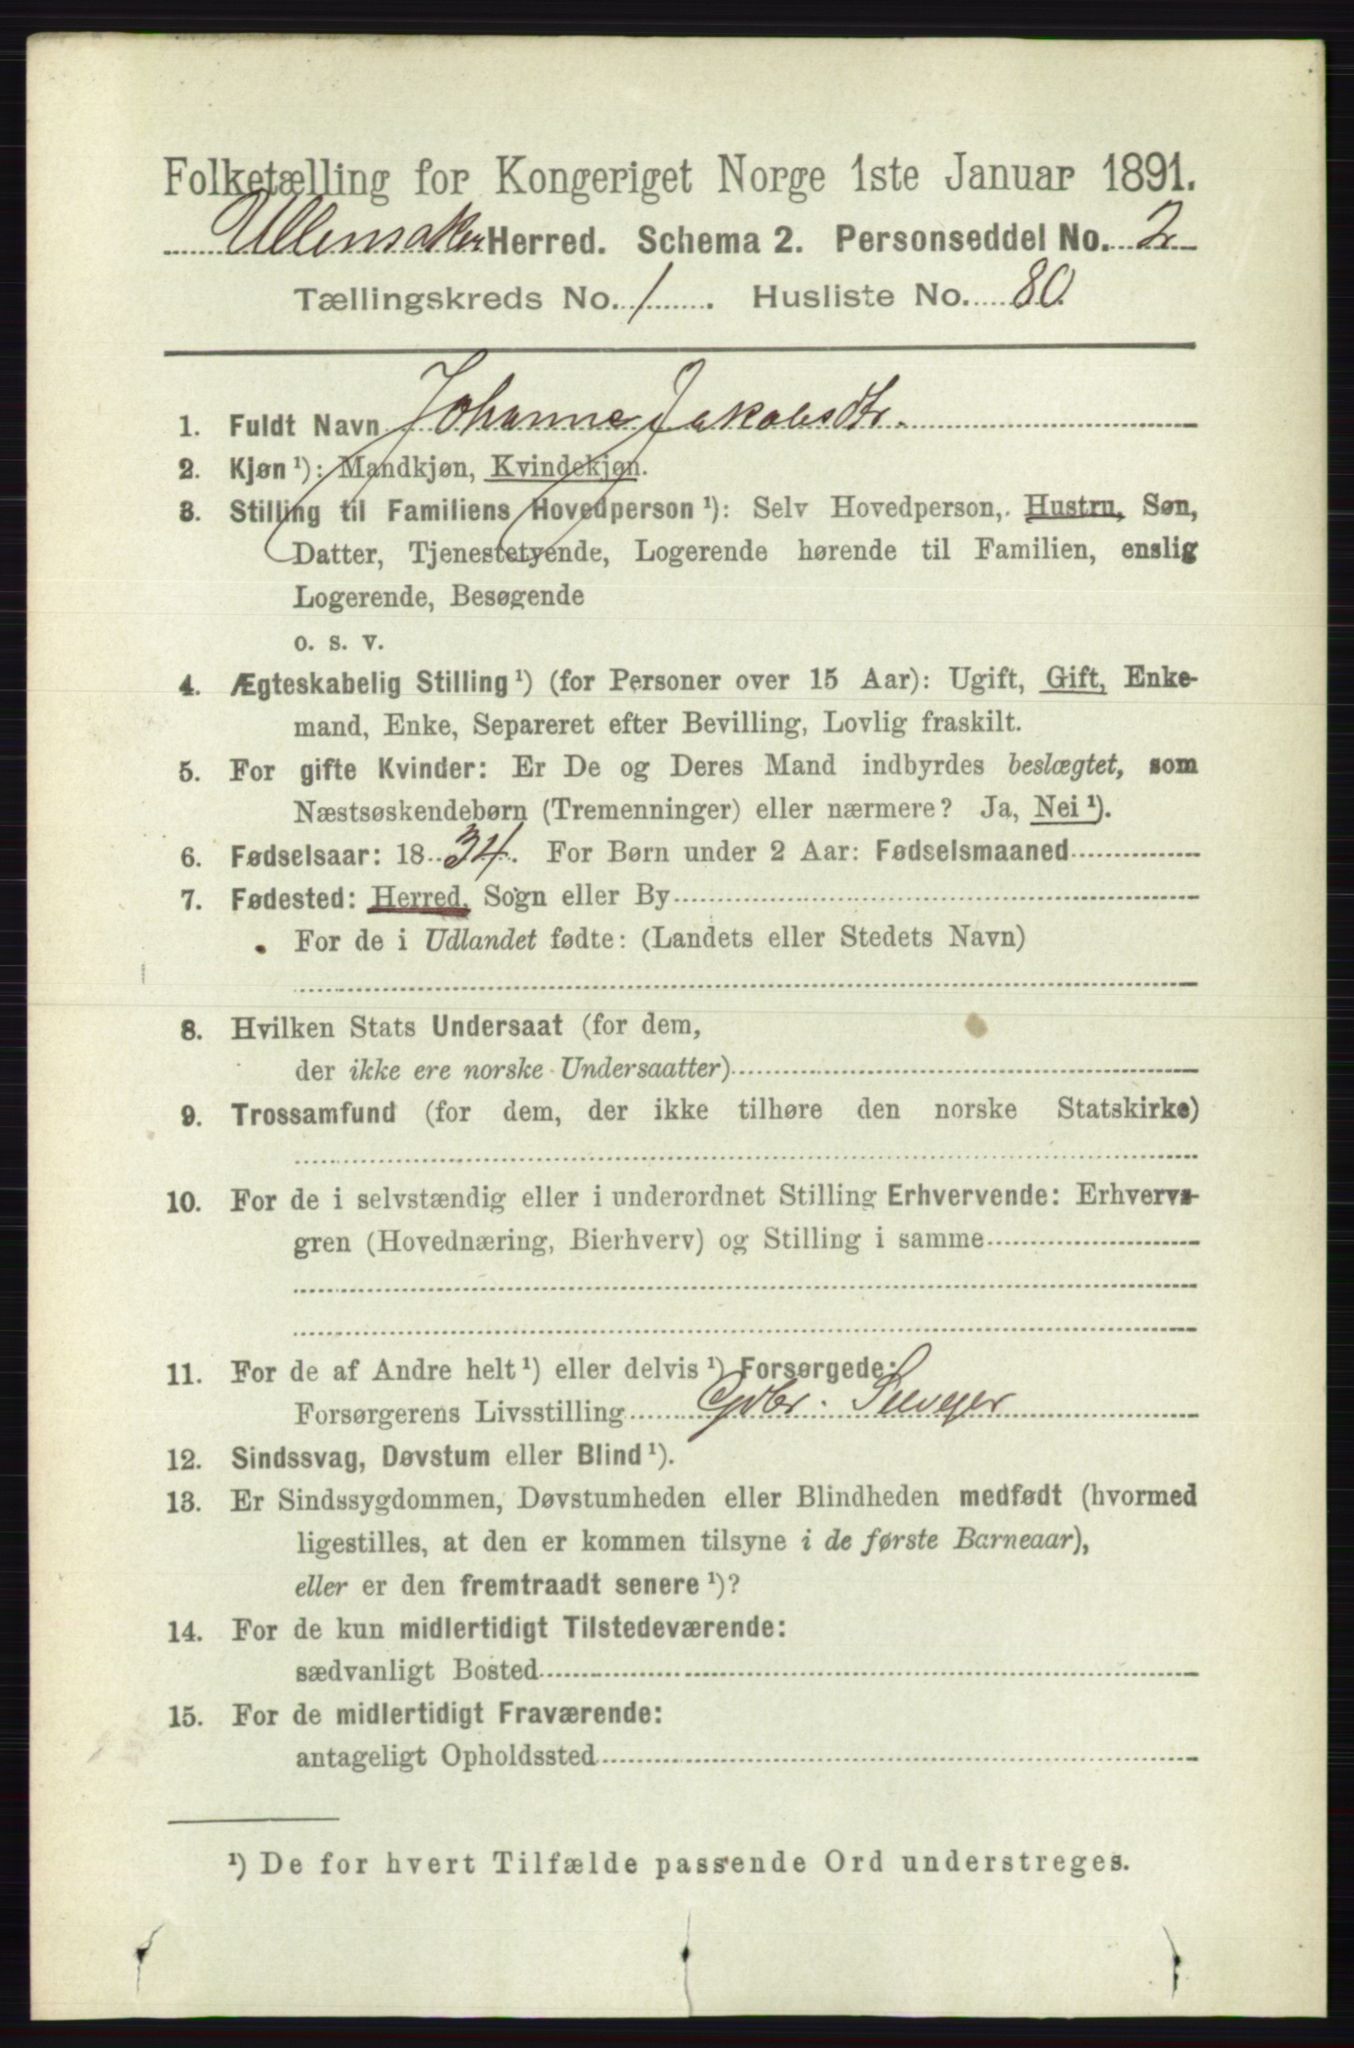 Folketælling for Kongeriget Norge 1ste Januar 1891.
Ullensaker Herred. Schema 2. Personseddel No. 2
Tællingskreds No. 1. Husliste No. 80.
1. Fuldt Navn Johanne Jakobsdtr.
2. Kjøn ¹): Mandkjøn, Kvindekjøn.
3. Stilling til Familiens Hovedperson ¹): Selv Hovedperson, Hustru, Søn,
Datter, Tjenestetyende, Logerende hørende til Familien, enslig
Logerende, Besøgende
o. s. v.
4. Ægteskabelig Stilling ¹) (for Personer over 15 Aar): Ugift, Gift, Enke-
mand, Enke, Separeret efter Bevilling, Lovlig fraskilt.
5. For gifte Kvinder: Er De og Deres Mand indbyrdes beslægtet, som
Næstsøskendebørn (Tremenninger) eller nærmere? Ja, Nei ¹).
6. Fødselsaar: 1834. For Børn under 2 Aar: Fødselsmaaned
7. Fødested: Herred, Sogn eller By
For de i Udlandet fødte: (Landets eller Stedets Navn)
8. Hvilken Stats Undersaat (for dem,
der ikke ere norske Undersaatter)
9. Trossamfund (for dem, der ikke tilhøre den norske Statskirke)
10. For de i selvstændig eller i underordnet Stilling Erhvervende: Erhvervs-
gren (Hovednæring, Bierhverv) og Stilling i samme
11. For de af Andre helt ¹) eller delvis ¹) Forsørgede:
Forsørgerens Livsstilling Gdbr. Selvejer
12. Sindssvag, Døvstum eller Blind ¹).
13. Er Sindssygdommen, Døvstumheden eller Blindheden medfødt (hvormed
ligestilles, at den er kommen tilsyne i de første Barneaar),
eller er den fremtraadt senere ¹)?
14. For de kun midlertidigt Tilstedeværende:
sædvanligt Bosted
15. For de midlertidigt Fraværende:
antageligt Opholdssted
¹) De for hvert Tilfælde passende Ord understreges.